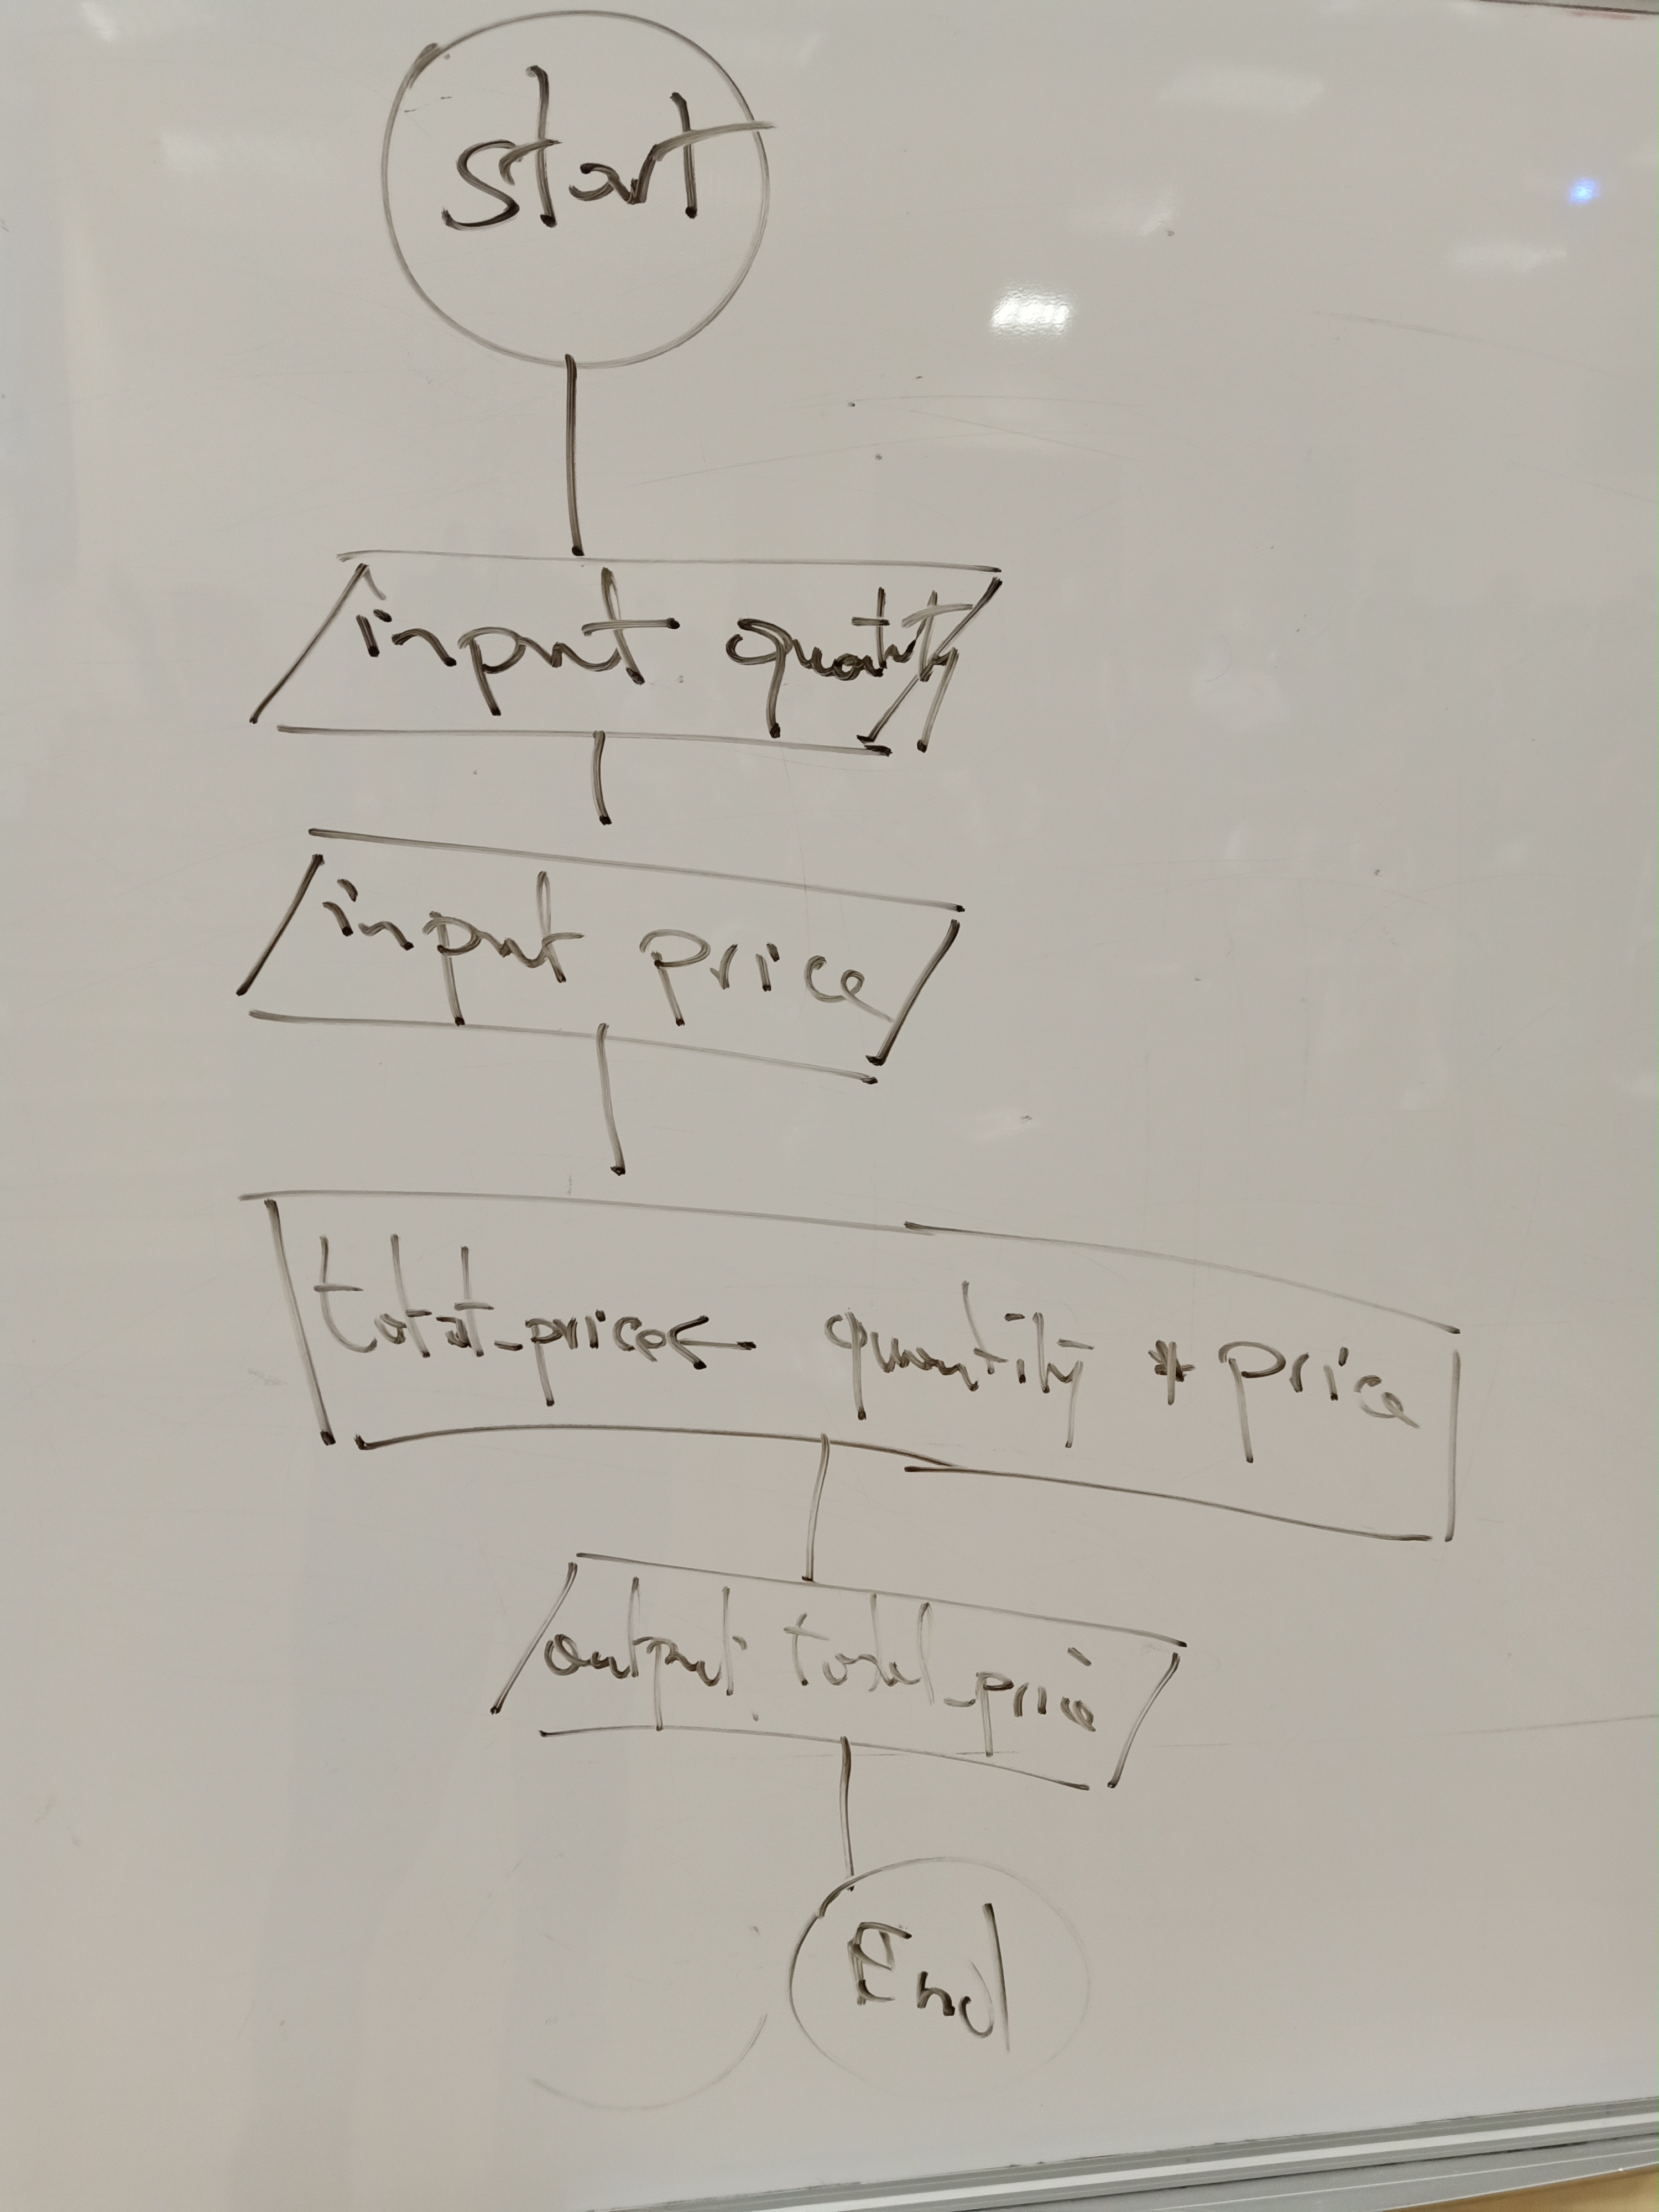 Start
input quantity
input price
total_price ← quantity * price
output total_price
End